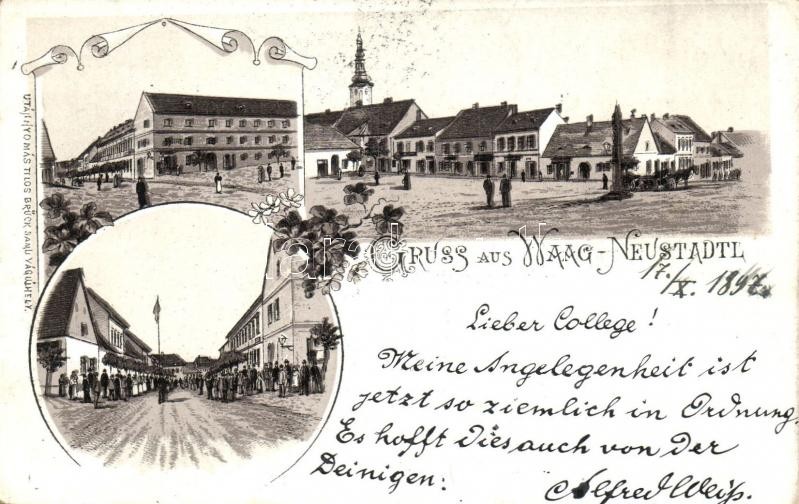 UTÁNNYOMÁS TILOS BRÜCK SAMU VÁGUJHELY.
GRUSS AUS WAAG-NEUSTADTL
17./X. 1897.
Lieber College!
Meine Angelegenheit ist
jetzt so ziemlich in Ordnung.
Es hofft dies auch von der
Deinigen:
Alfred Weiss.